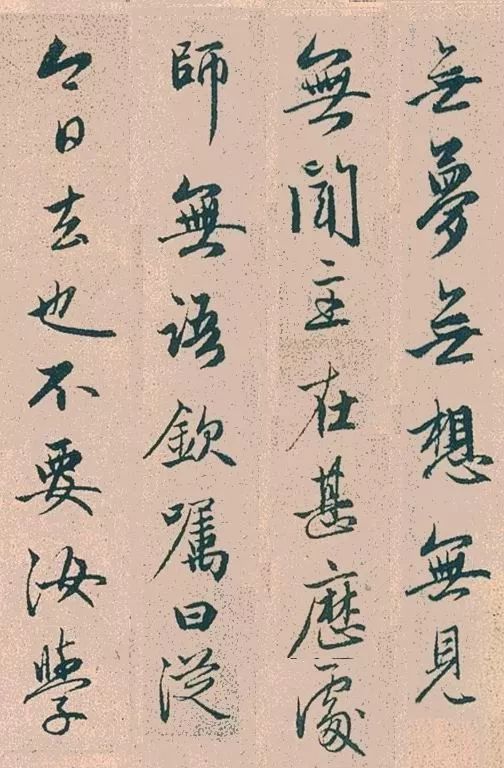 無夢無想無見
無聞主在甚麽處
師無語欽嘱曰從
今日去也不要汝學